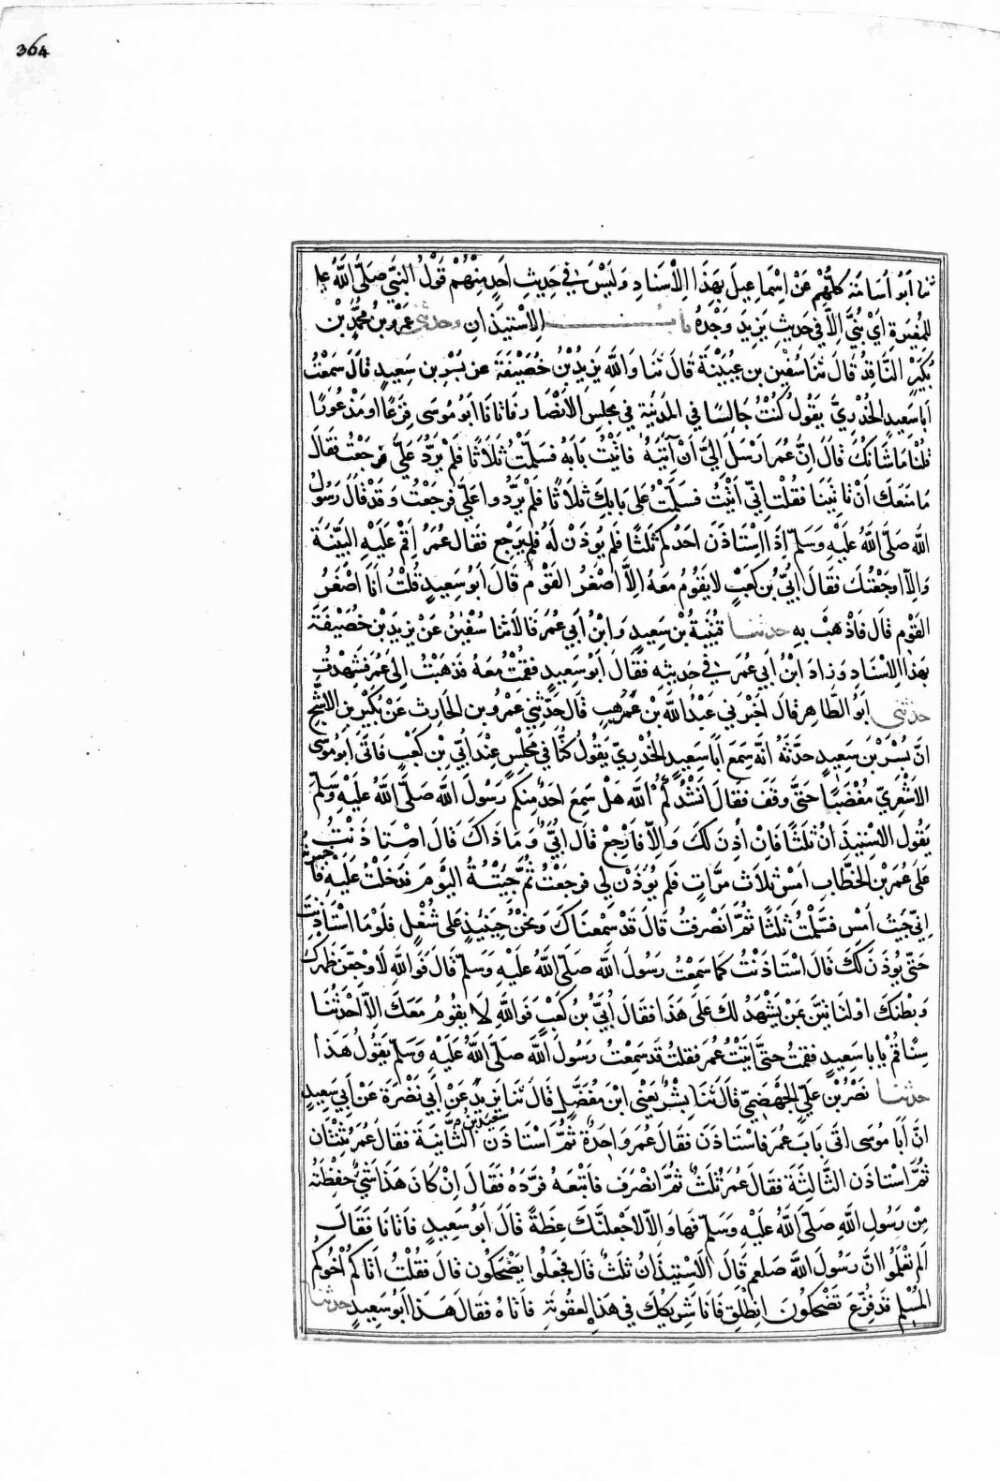 364
ثنا أبو أسامة كلهم عن إسماعيل بهذا الإسناد وليس في حديث أحد منهم قول النبي صلى الله عليه
للمغيرة أي بني إلا في حديث يزيد وحده باب الاستيذان وحدثني عمرو بن محمد بن
بكير الناقد قال ثنا سفين بن عيينة قال ثنا والله يزيد بن خصيفة عن بسر بن سعيد قال سمعت
أبا سعيد الخدري يقول كنت جالسا في المدينة في مجلس الأنصار فاتانا أبو موسى فزعا او مذعورا
قلنا ما شانك قال إن عمر أرسل إلي أن آتيه فأتيت بابه فسلمت ثلاثا فلم يرد علي فرجعت فقال
ما منعك أن تاتينا فقلت إني أتيت فسلمت على بابك ثلاثا فلم يردوا علي فرجعت وقد قال رسول
الله صلى الله عليه وسلم إذا استاذن أحدكم ثلثا فلم يوذن له فليرجع فقال عمر أقم عليه البينة
وإلا اوجعتك فقال أبي بن كعب لا يقوم معه إلا أصغر القوم قال أبو سعيد قلت أنا أصغر
القوم قال فاذهب به حدثنا قتيبة بن سعيد وابن أبي عمر قالا ثنا سفين عن يزيد بن خصيفة
بهذا الإسناد وزاد ابن أبي عمر في حديثه فقال أبو سعيد فقمت معه فذهبت إلى عمر فشهدت
حدثني أبو الطاهر قال أخبرني عبد الله بن وهب قال حدثني عمرو بن الحارث عن بكير بن الاشج
ان بسر بن سعيد حدثه انه سمع أبا سعيد الخدري يقول كنا في مجلس عند أبي بن كعب فاتى أبو موسى
الاشعري مغضبا حتى وقف فقال أنشدكم الله هل سمع احد منكم رسول الله صلى الله عليه وسلم
يقول الاستيذان ثلثا فان أذن لك وإلا فارجع قال أبي وما ذاك قال استاذنت
على عمر بن الخطاب امس ثلاث مرات فلم يوذن لي فرجعت ثم جيته اليوم فدخلت عليه فاخبرته
إني جيت أمس فسلمت ثلثا ثم انصرفت قال قد سمعناك ونحن حينئذ على شغل فلو ما استاذنت
حتى يوذن لك قال استاذنت كما سمعت رسول الله صلى الله عليه وسلم قال فوالله لاوجعن ظهرك
وبطنك اولتاتين عن يشهد لك على هذا فقال أبي بن كعب فوالله لا يقوم معك الا احدثنا
سنا قم يا با سعيد فقمت حتى اتيت عمر فقلت قد سمعت رسول الله صلى الله عليه وسلم يقول هذا
حدثنا نصر بن علي الجهضمي قال ثنا بشر يعني ابن مفضل قال ثنا يزيد عن أبي نضرة عن أبي سعيد
سعيد بن
ان أبا موسى اتى باب عمر فاستاذن فقال عمر واحدة ثم استاذن الثانية فقال عمر ثنتان
ثم استاذن الثالثة فقال عمر ثلث ثم انصرف فاتبعه فرده فقال إن كان هذا شي حفظته
من رسول الله صلى الله عليه وسلم فها وإلا لاجعلنك عظة قال أبو سعيد فاتانا فقال
ألم تعلموا ان رسول الله صلعم قال الاستيذان ثلث قال فجعلوا يضحكون قال فقلت أتاكم أخوكم
المسلم قد فزع تضحكون انطلق فانا شريكك في هذه العقوبة فاتاه فقال هذا أبو سعيد حدثنا